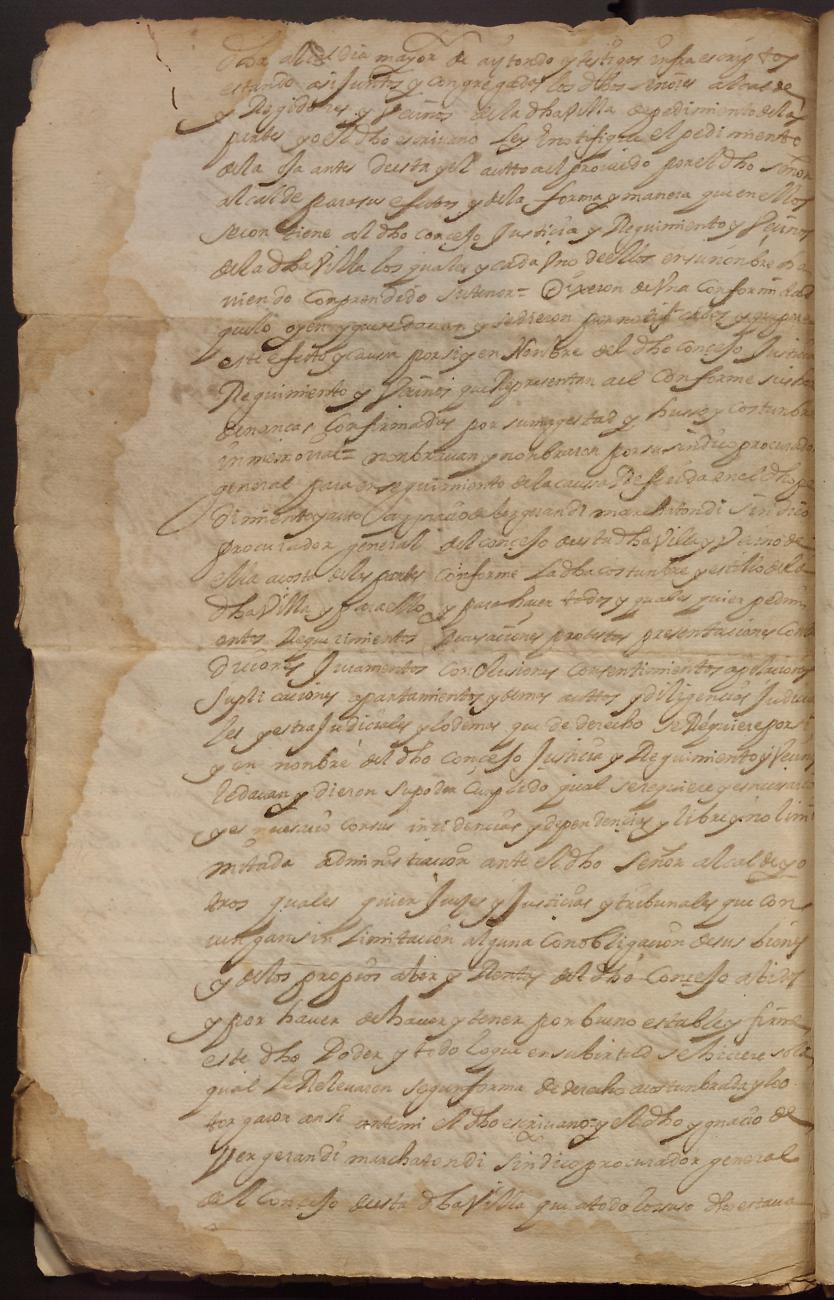 dha alcaldia mayor de aytondo y testigos infraescriptos
estando asi Juntos y congregados los dhos señores alcalde
y Regidores y Veçinos de la dha Villa de pedimiento de las
partes yo el dho escrivano Ley E notifique el pedimiento
de la oja antes de esta y el autto a el proveido por el dho señor
alcalde para sus efectos y de la forma y manera que en ellos
se contiene al dho conçejo Justiçia y Reguimiento y Veçinos
de la dha Villa los quales y cada Vno de ellos en su nombre ha
viendo Conprendido su tenor = Dixeron de Vna Conformidad
que lo oyen y que se davan y se dieron por notificados y que para
este efecto y causa por si y en Nonbre del dho conçejo Justiçia
Reguimiento y Veçinos que Representan a el Conforme sus hor
denancas Confirmadas por su magestad y husso y costunbre
inmemorial = nonbravan y nonbraron por su sindico procurador
general para en seguimiento de la causa Referida en el dho pe
dimiento y auto a ygnacio de bergerandi marchatondi sindico
procurador general del conçejo de esta dha Villa y Veçino de
ella a costa de las partes conforme La dha costunbre y estilo de la
dha Villa y para ello y para haçer todos y quales quier pedimi
entos Requerimientos Recusaçiones protestos presentaçiones Contra
diçiones Juramentos Conclusiones Consentimientos apelaçiones
Suplicaçiones apartamientos y demas auttos y diligençias Judiçia
les y estra Judiçiales y lo demas que de derecho se Requiere por si
y en nonbre del dho Conçejo Justiçia y Reguimiento y Veçinos
le davan y dieron su poder Cunplido qual se requiere y es neçesario
y es neçesario con sus inçidençias y dependençias y libre y no limi
mitada administraçion ante el dho Señor alcalde y o
tros quales quier Jueçes y Justiçias y tribunales que con
vengan sin Limitaçion alguna con obligaçion de sus bienes
y de los propios aber y Rentas del dho Conçejo abidos
y por haver de haver y tener por bueno estable y firme
este dho Poder y todo lo que en su birtud se hiçiere so la
qual le Relevaron segun forma de derecho acostunbrada y lo o
torgaron ansi ante mi el dho escrivano = y el dho ygnaçio de
Vergerandi marchatondi sindico procurador general
del Conçejo de esta dha Villa que a todo lo suso dho estava